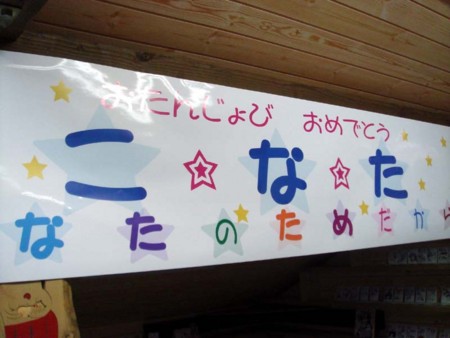 おたんじょうび おめでとう
こ☆な☆た
なたのためだから